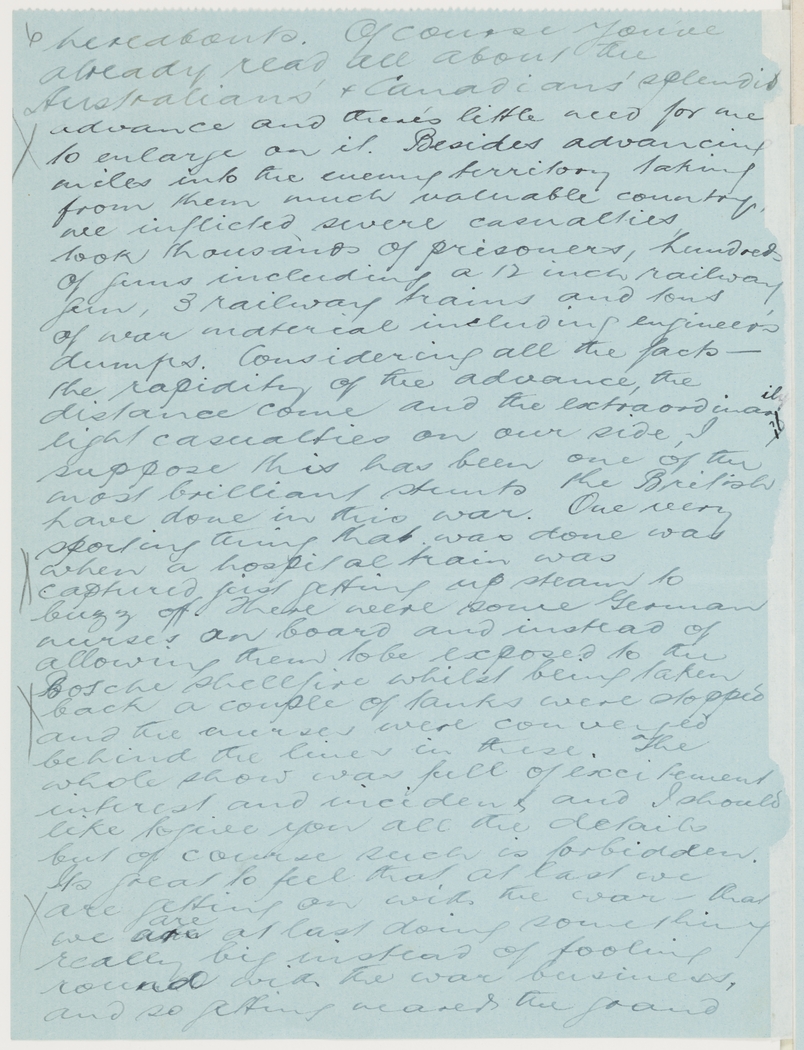 hereabouts. Of course you've
already read all about the
Australians' + Canadians' splendid
advance and there's little need for me
to enlarge on it. Besides advancing
miles into the enemy territory taking
from them much valuable country,
we inflicted severe casualties,
took thousands of prisoners, hundreds
of guns including a 12 inch railway
gun, 3 railway trains and tons
of war material including engineers
dumps. Considering all the facts —
the rapidity of the advance, the
distance come and the extraordinarily
light casualties on our side, I
suppose this has been one of the
most brilliant stunts the British
have done in this war. One very
sporting thing that was done was
when a hospital train was
captured just getting up steam to
buzz off. There were some German
nurses on board and instead of
allowing them to be exposed to the
Bosche shellfire whilst being taken
back a couple of tanks were stopped
and the nurses were conveyed
behind the lines in these. The
whole show was full of excitement
interest and incident, and I should
like to give you all the details
but of course such is forbidden.
Its great to feel that at last we
are getting on with the war – that
we are at last doing something
really big instead of fooling
round with the war business,
and so getting nearer the grand